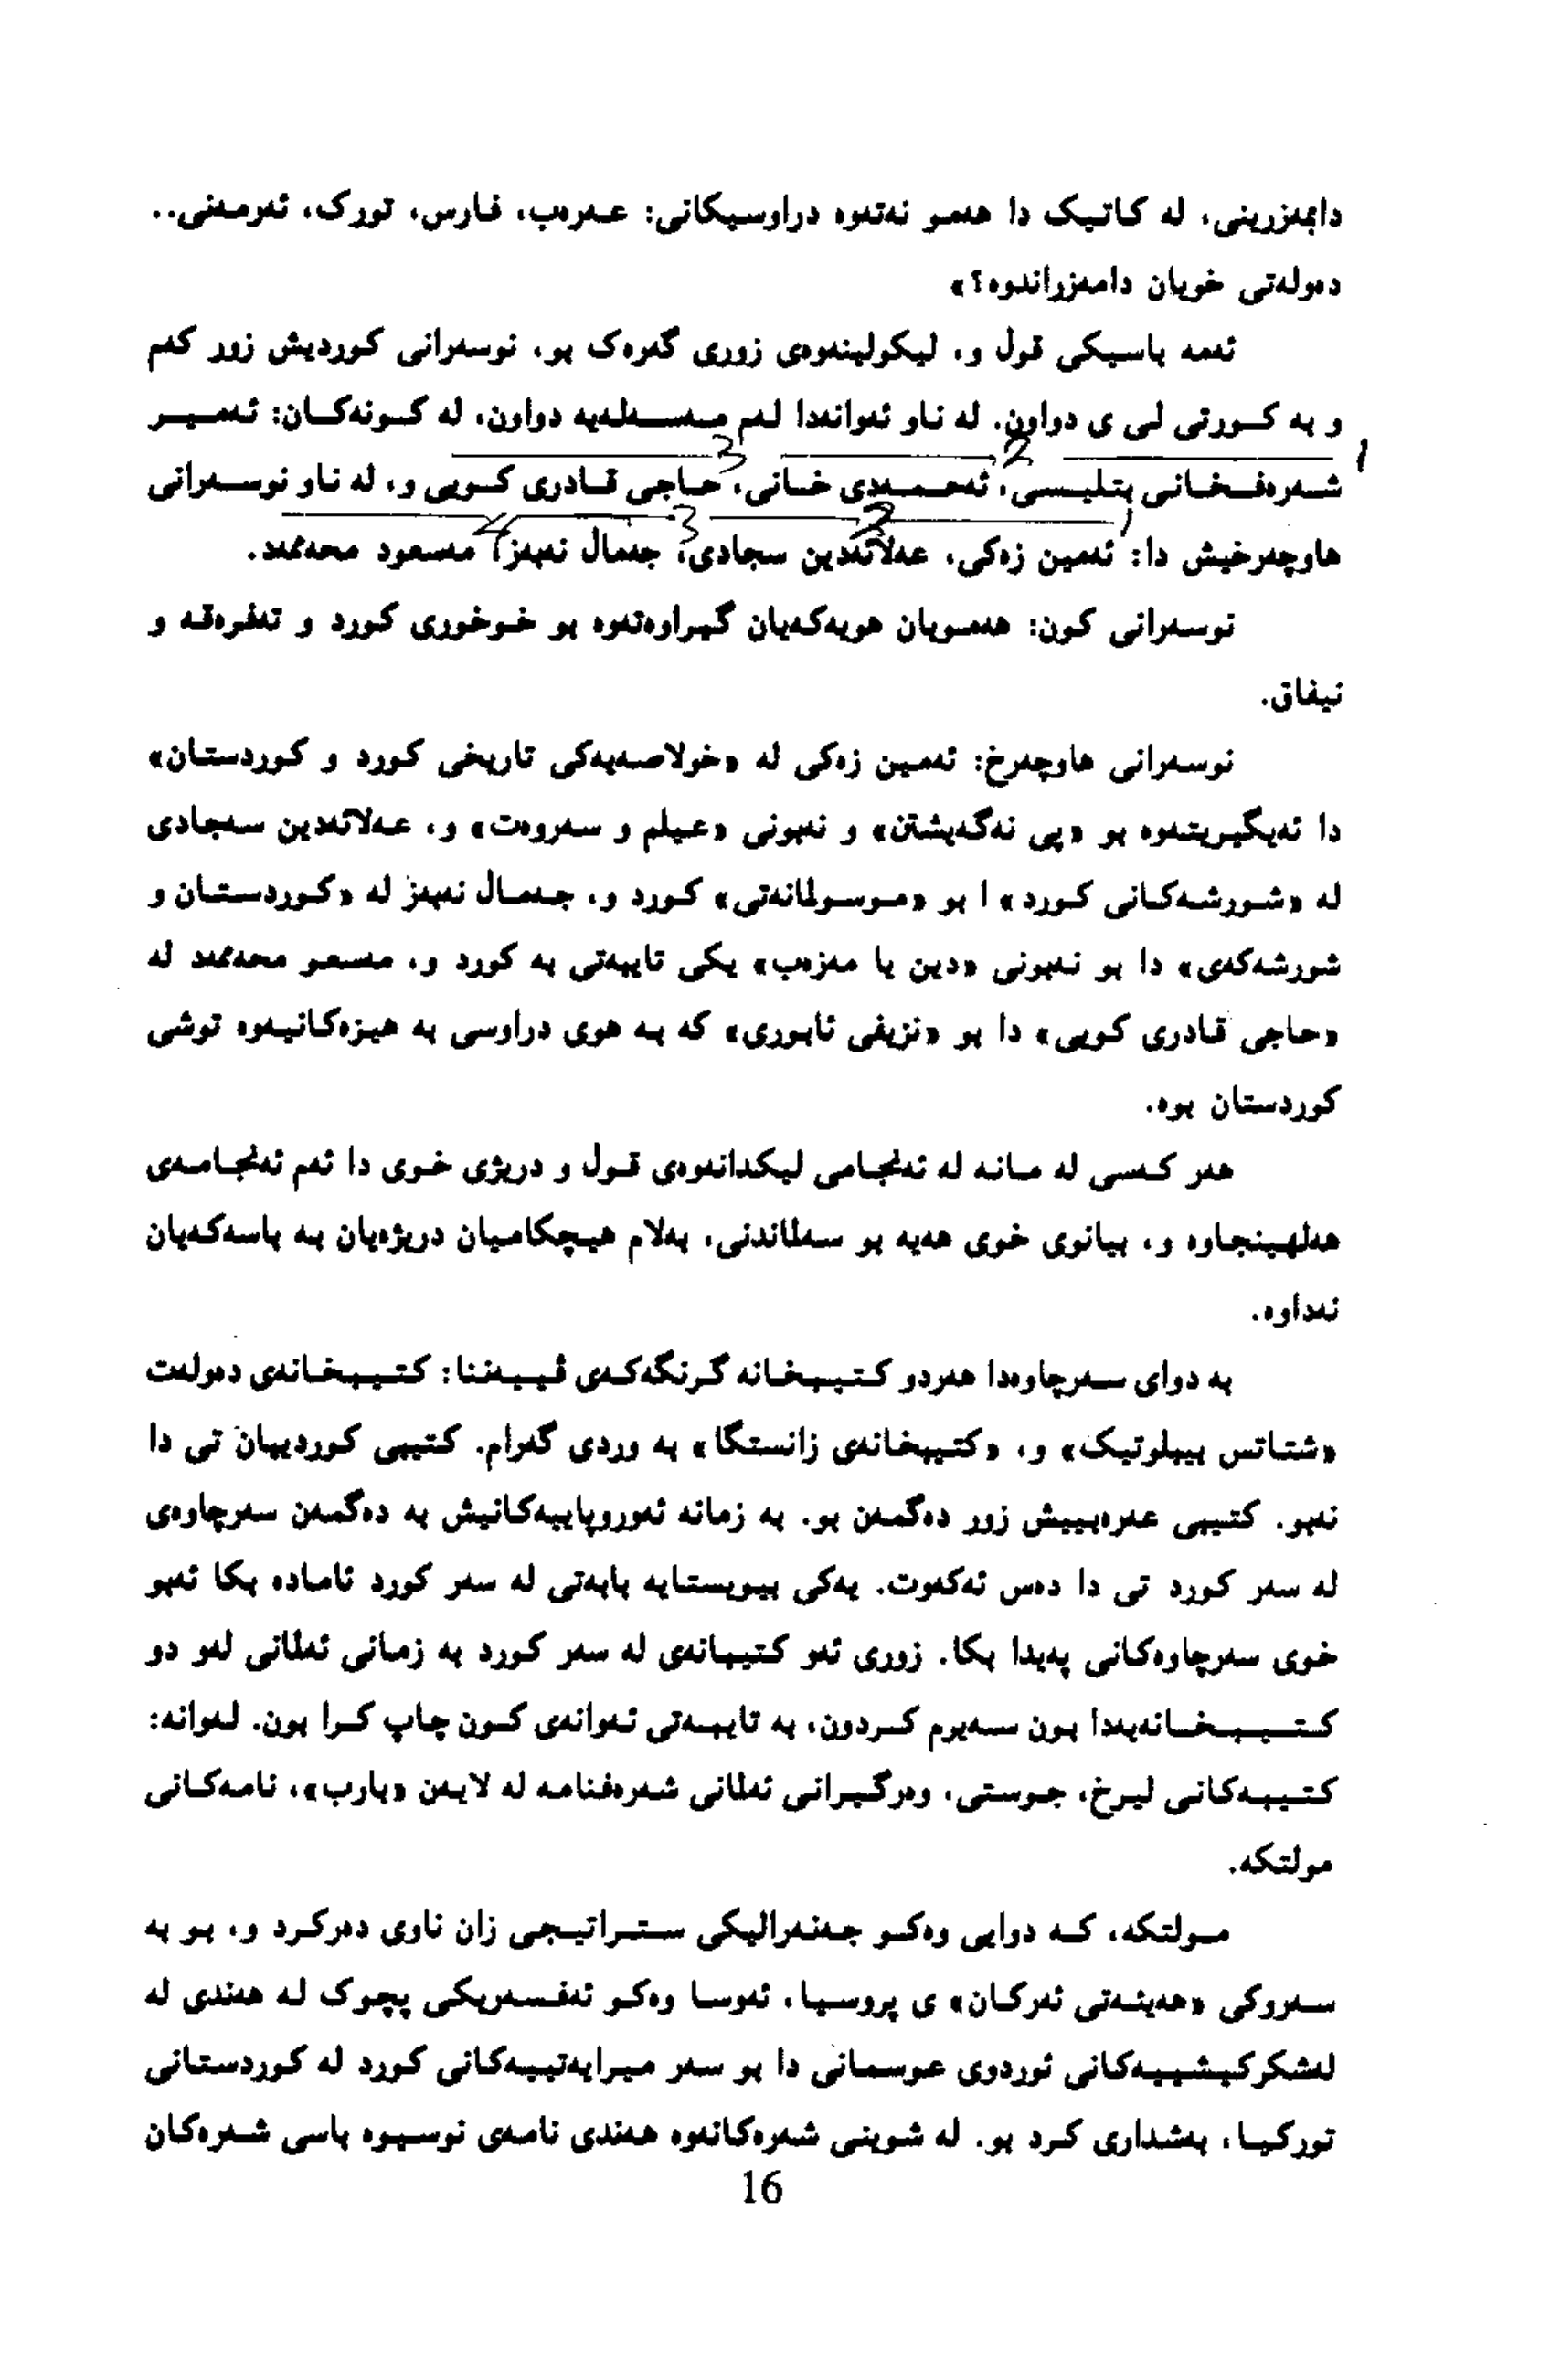 دابمەزرینی، لە کاتیک دا هەمو نەتەوە دراوسیکانی: عەرەب، فارس، تورک، ئەرمەنی..
دەولەتی خویان دامەزراندوە؟»
ئەمە باسیکی قول و، لیکولینەوەی زوری گەرەک بو، نوسەرانی کوردیش زور کەم
و بە کورتی لی ی دواون. لە ناو ئەوانەدا لەم مەسەلەیە دواون، لە کونەکان: ئەمیر
شەرەفخانی بتلیسی، ئەحمەدی خانی، حاجی قادری کویی و، لە ناو نوسەرانی
هاوچەرخیش دا: ئەمین زەکی، عەلائەدین سجادی، جەمال نەبەز، مەسعود محەمەد.
نوسەرانی کون: هەمویان هویەکەیان گیراوەتەوە بو خوخوری کورد و تەفرەقە و
نیفاق.
نوسەرانی هاوچەرخ: ئەمین زەکی لە «خولاصەیەکی تاریخی کورد و کوردستان»
دا ئەیگیریتەوە بو «پی نەگەیشتن» و نەبونی «عیلم و سەروەت» و، عەلائەدین سەجادی
لە «شورشەکانی کورد» ا بو «موسولمانەتی» کورد و، جەمال نەبەز لە «کوردستان و
شورشەکەی» دا بو نەبونی «دین یا مەزەب» یکی تایبەتی بە کورد و، مەسعو محەمەد لە
«حاجی قادری کویی» دا بو «نزیفی ئابوری» کە بە هوی دراوسی بە هیزەکانیەوە توشی
کوردستان بوە.
هەر کەسی لە مانە لە ئەنجامی لیکدانەوەی قول و دریژی خوی دا ئەم ئەنجامەی
هەلهینجاوە و، بیانوی خوی هەیە بو سەلماندنی، بەلام هیچکامیان دریژەیان بە باسەکەیان
نەداوە.
بە دوای سەرچاوەدا هەردو کتیبخانە گرنگەکەی ڤیەننا: کتیبخانەی دەولەت
«شتاتس بیبلوتیک» و، «کتیبخانەی زانستگا» بە وردی گەرام. کتیبی کوردییان تی دا
نەبو. کتیبی عەرەبییش زور دەگمەن بو. بە زمانە ئەوروپاییەکانیش بە دەگمەن سەرچاوەی
لە سەر کورد تی دا دەس ئەکەوت. یەکی بیویستایە بابەتی لە سەر کورد ئامادە بکا ئەبو
خوی سەرچاوەکانی پەیدا بکا. زوری ئەو کتیبانەی لە سەر کورد بە زمانی ئەلمانی لەو دو
کتیبخانەیەدا بون سەیرم کردون، بە تایبەتی ئەوانەی کون چاپ کرا بون. لەوانە:
کتیبەکانی لیرخ، جوستی، وەرگیرانی ئەلمانی شەرەفنامە لە لایەن «بارب»، نامەکانی
مولتکە.
مولتکە، کە دوایی وەکو جەنەرالیکی ستراتیجی زان ناوی دەرکرد و، بو بە
سەروکی «هەیئەتی ئەرکان» ی پروسیا، ئەوسا وەکو ئەفسەریکی پچوک لە هەندی لە
لەشکرکیشییەکانی ئوردوی عوسمانی دا بو سەر میرایەتییەکانی کورد لە کوردستانی
تورکیا، بەشداری کرد بو. لە شوینی شەرەکانەوە هەندی نامەی نوسیوە باسی شەرەکان
16
1
2
3
1
2
3
4